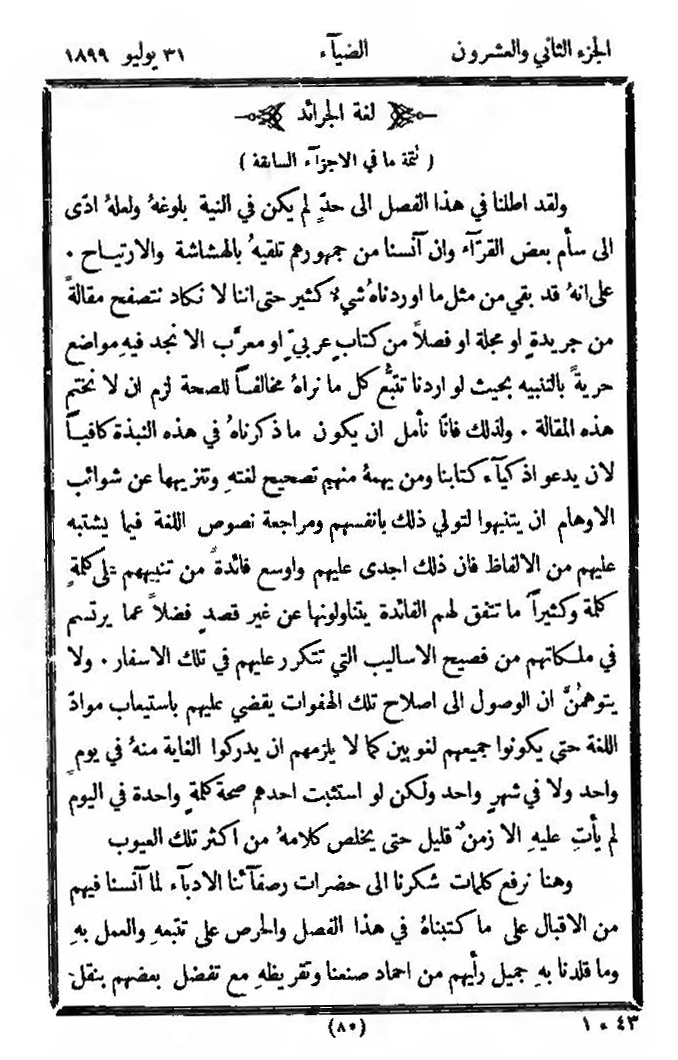 الجزء الثاني والعشرون الضيآء ٣١ يوليو ١٨٩٩
لغة الجرائد
( تتمة ما في الاجزآء السابقة )
ولقد اطلنا في هذا الفصل الى حدٍّ لم يكن في النية بلوغهُ ولعلهُ ادّى
الى سأم بعض القرّآء وان آنسنا من جمهورهم تلقيهُ بالهشاشة والارتياح ٠
على انهُ قد بقي من مثل ما اوردناهُ شيءٌ كثير حتى اننا لا نكاد نتصفح مقالةً
من جريدةٍ او مجلة او فصلاً من كتابٍ عربيٍّ او معرَّب الا نجد فيهِ مواضع
حريةً بالتنبيه بحيث لو اردنا تتبُّع كل ما نراهُ مخالفاً للصحة لزم ان لا نختم
هذه المقالة ٠ ولذلك فانّا نأمل ان يكون ما ذكرناهُ في هذه النبذة كافياً
لان يدعو اذكيآء كتابنا ومن يهمهُ منهم تصحيح لغتهِ وتنزيهها عن شوائب
الاوهام ان يتنبهوا لتولي ذلك بانفسهم ومراجعة نصوص اللغة فيما يشتبه
عليهم من الالفاظ فان ذلك اجدى عليهم واوسع فائدةً من تنبيههم على كلمةٍ
كلمة وكثيراً ما تتفق لهم الفائدة يتناولونها عن غير قصدٍ فضلاً عما يرتسم
في ملكاتهم من فصيح الاساليب التي تتكرر عليهم في تلك الاسفار ٠ ولا
يتوهمُنَّ ان الوصول الى اصلاح تلك الهفوات يقضي عليهم باستيعاب موادّ
اللغة حتى يكونوا جميعهم لغويين كما لا يلزمهم ان يدركوا الغاية منهُ في يومٍ
واحد ولا في شهرٍ واحد ولكن لو استثبت احدهم صحة كلمةٍ واحدة في اليوم
لم يأتِ عليهِ الا زمنٌ قليل حتى يخلص كلامهُ من اكثر تلك العيوب
وهنا نرفع كلمات شكرنا الى حضرات رصفآئنا الادبآء لما آنسنا فيهم
من الاقبال على ما كتبناهُ في هذا الفصل والحرص على تتبعهِ والعمل بهِ
وما قلدنا بهِ جميل رأيهم من احماد صنعنا وتقريظهِ مع تفضل بعضهم بنقل
(٨٥)
٤٣ * ١